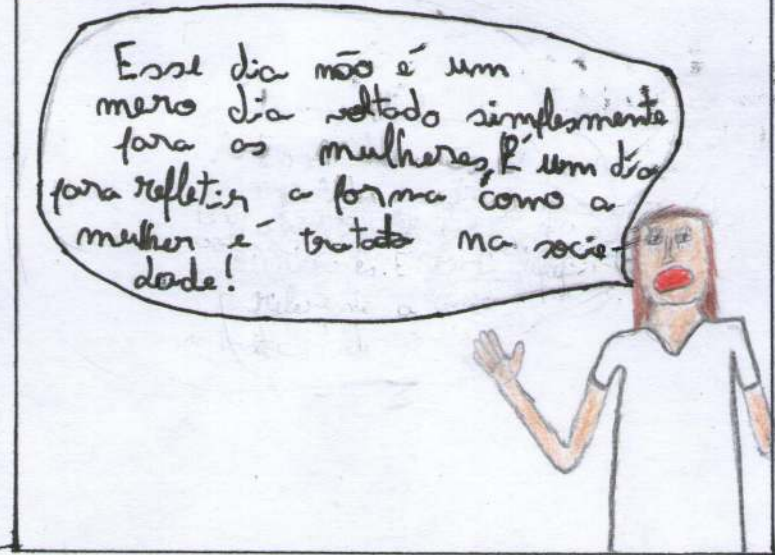 Esse dia não é um
mero dia voltado simplesmente
para as mulheres, É um dia
para refletir a forma como a
mulher é tratada na socie-
dade!